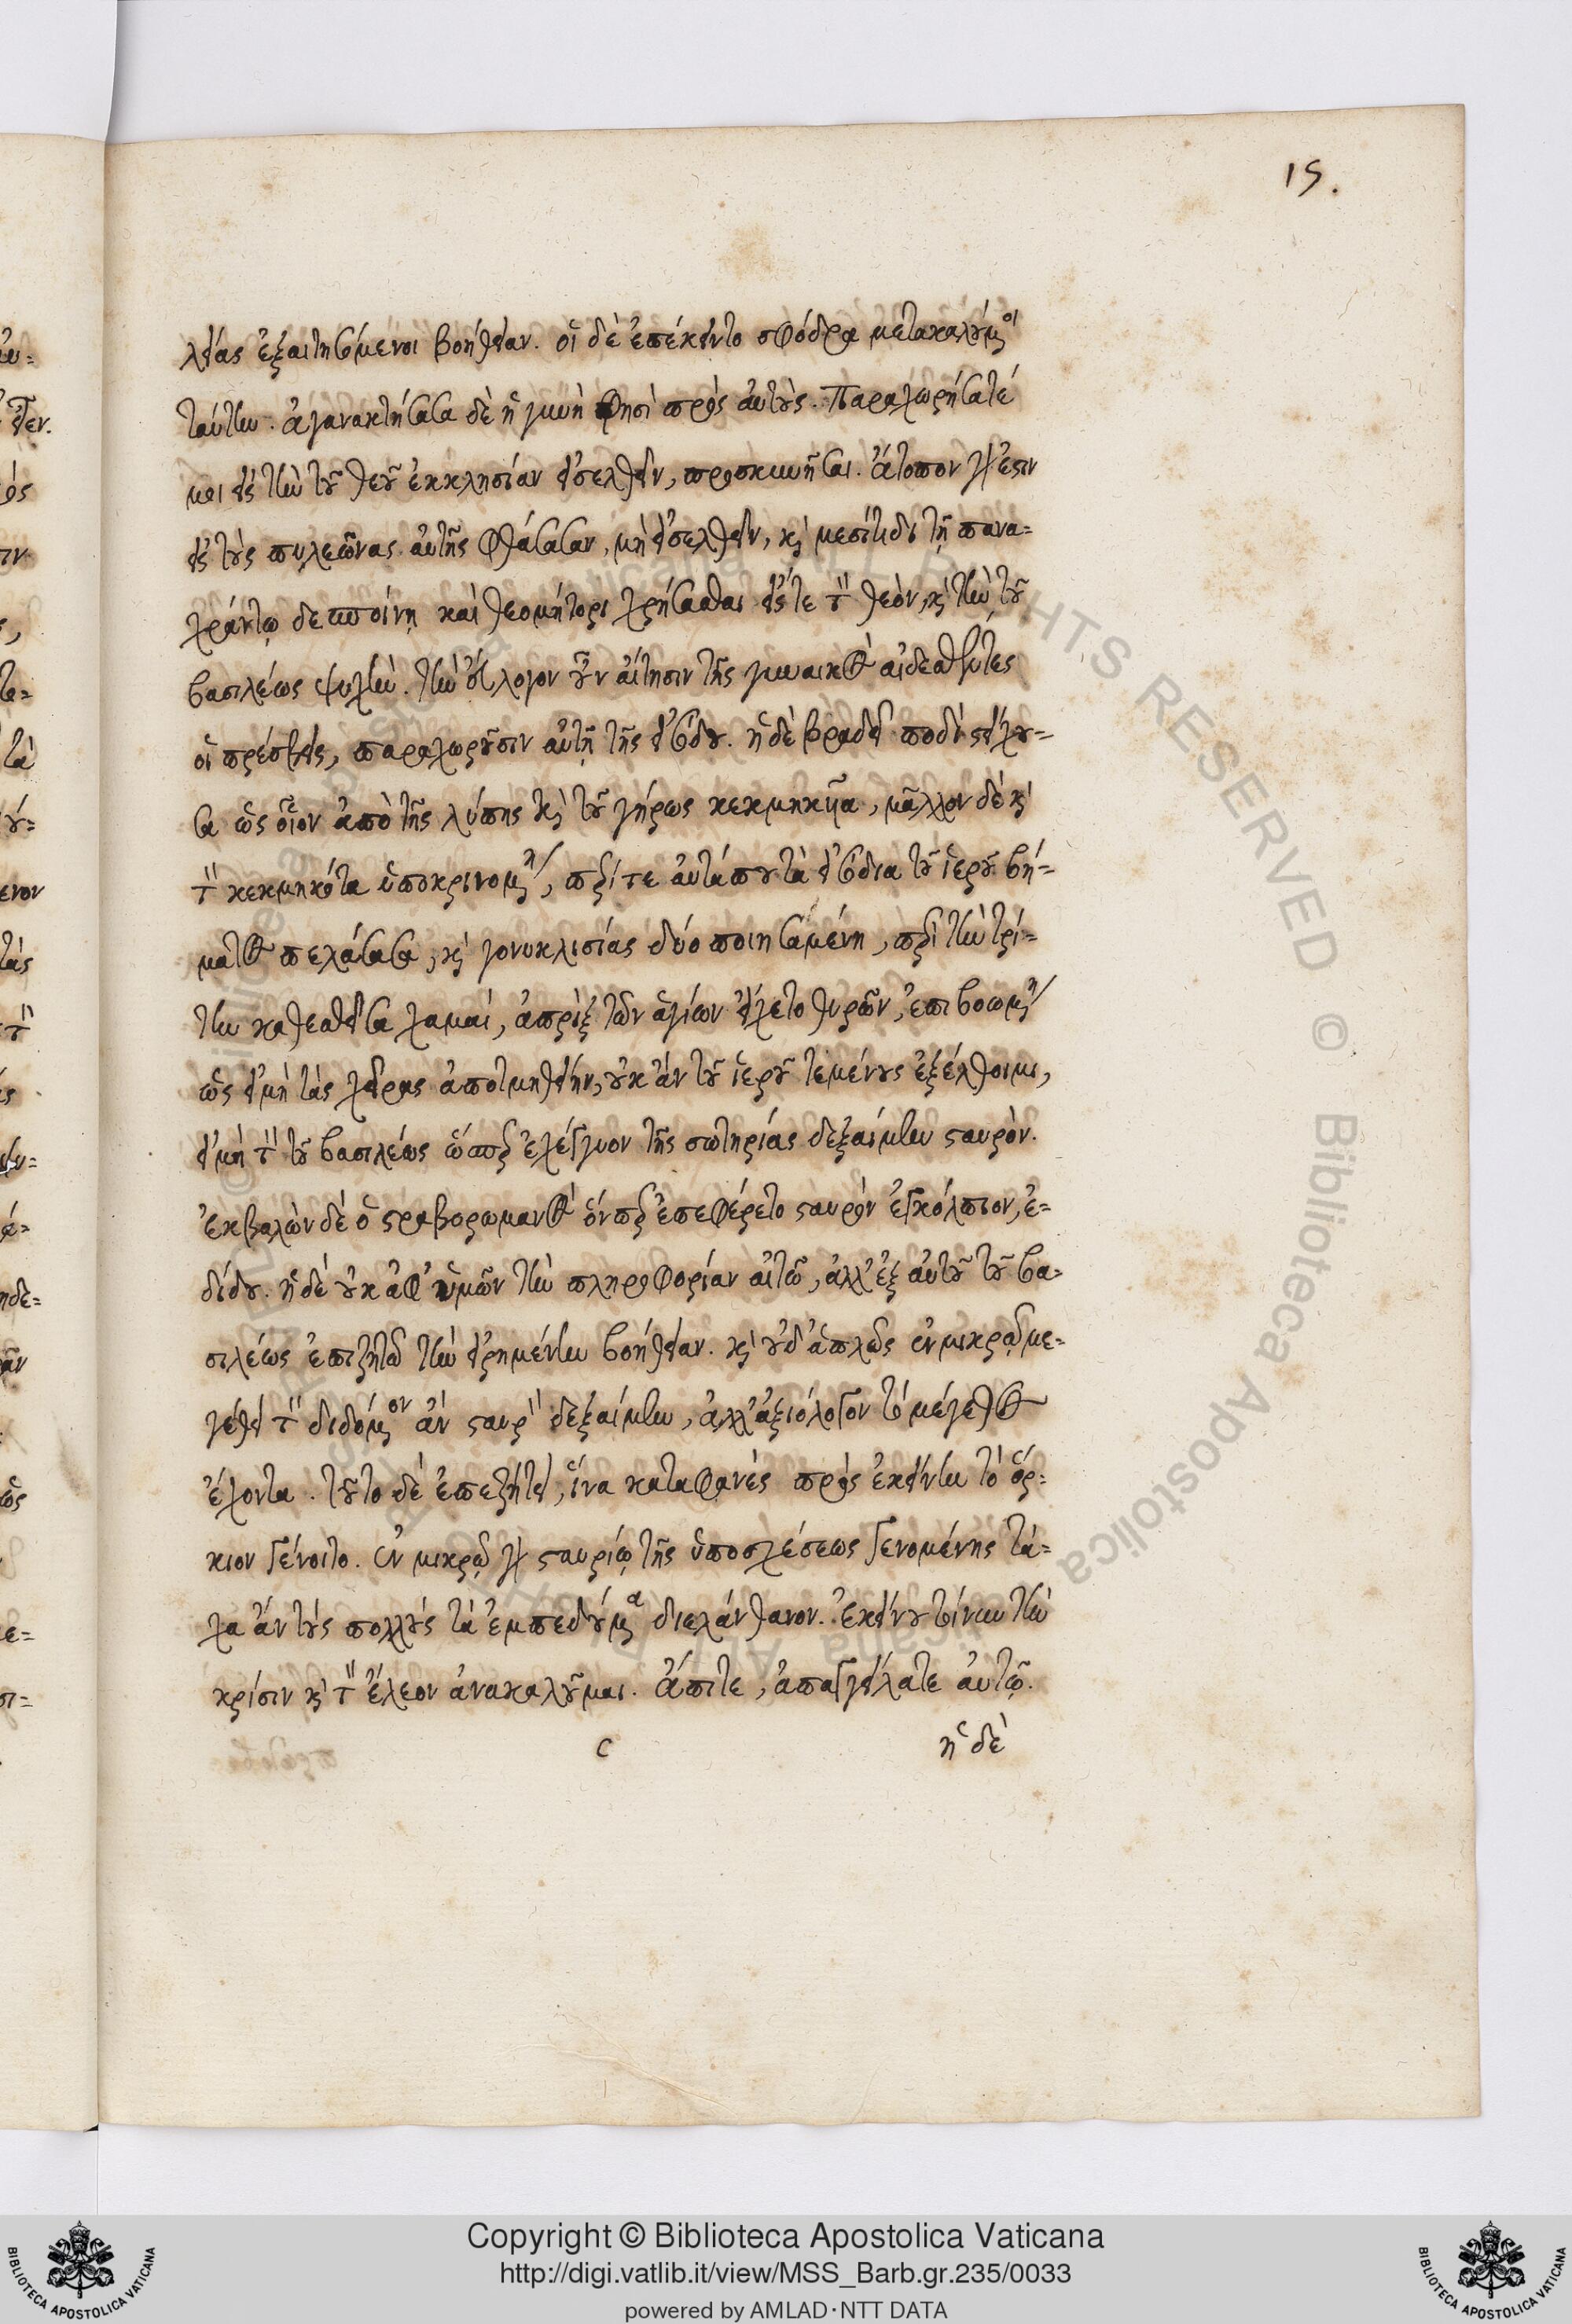 15.
λείας ἐξαιτησόμενοι βοήθειαν. οἱ δὲ ἐπέκειντο σφόδρα μετακαλούμενοι
ταύτην. ἀγανακτήσασα δὲ ἡ γυνὴ φησὶ πρὸς αὐτούς. Παραχωρήσατέ
μοι εἰς τὴν τοῦ θεοῦ ἐκκλησίαν εἰσελθεῖν, προσκυνῆσαι. ἄτοπον γάρ ἐστιν
εἰς τοὺς πυλεῶνας αὐτῆς φθάσασαν, μὴ εἰσελθεῖν, καὶ μεσίτιδι τῇ πανα=
χράντῳ δεσποίνῃ καὶ θεομήτορι χρήσασθαι εἴς τε τὸν θεὸν, καὶ τὴν τοῦ
βασιλέως ψυχήν. τὴν εὔλογον οὖν αἴτησιν τῆς γυναικὸς αἰδεσθέντες
οἱ πρέσβεις, παραχωροῦσιν αὐτῇ τῆς εἰσόδου. ἡ δὲ βραδεῖ ποδὶ στείχου=
σα ὡς οἷον ἀπὸ τῆς λύπης καὶ τοῦ γήρως κεκμηκυῖα, μᾶλλον δὲ καὶ
τὸν κεκμηκότα ὑποκρινομένη, περί τε αὐτά που τὰ εἰσόδια τοῦ ἱεροῦ βή=
ματος πελάσασα, καὶ γονυκλισίας δύο ποιησαμένη, περὶ τὴν τρί=
την καθεσθεῖσα χαμαί, ἀπρὶξ τῶν ἁγίων εἴχετο θυρῶν, ἐπιβοωμένη
ὡς εἰ μὴ τὰς χεῖρας ἀποτμηθείην, οὐκ ἂν τοῦ ἱεροῦ τεμένους ἐξέλθοιμι,
εἰ μὴ τὸν τοῦ βασιλέως ὥσπερ ἐχέγγυον τῆς σωτηρίας δεξαίμην σταυρὸν.
ἐκβαλὼν δὲ ὁ στραβορωμανὸς ὅνπερ ἐπεφέρετο σταυρὸν ἐγκόλπιον, ἐ=
δίδου. ἡ δὲ οὐκ ἀφ' ὑμῶν τὴν πληροφορίαν αἰτῶ, ἀλλ' ἐξ αὐτοῦ τοῦ βα=
σιλέως ἐπιζητῶ τὴν εἰρημένην βοήθειαν. καὶ οὐδ' ἁπλῶς ἐν μικρῷ με=
γέθει τὸν διδόμενον ἂν σταυρὸν δεξαίμην, ἀλλ' ἀξιόλογον τὸ μέγεθος
ἔχοντα. τοῦτο δὲ ἐπεζήτει, ἵνα καταφανὲς πρὸς ἐκείνην τὸ ὅρ=
κιον γένοιτο. ἐν μικρῷ γὰρ σταυρίῳ τῆς ὑποσχέσεως γενομένης τά=
χα ἂν τοὺς πολλοὺς τὰ ἐμπεδούμενα διελάνθανον. ἐκείνου τίνων τὴν
κρίσιν καὶ τὸν ἔλεον ἀνακαλοῦμαι. ἄπιτε, ἀπαγγείλατε αὐτῷ.
c ἡ δὲ
Copyright © Biblioteca Apostolica Vaticana
http://digi.vatlib.it/view/MSS_Barb.gr.235/0033
powered by AMLAD·NTT DATA